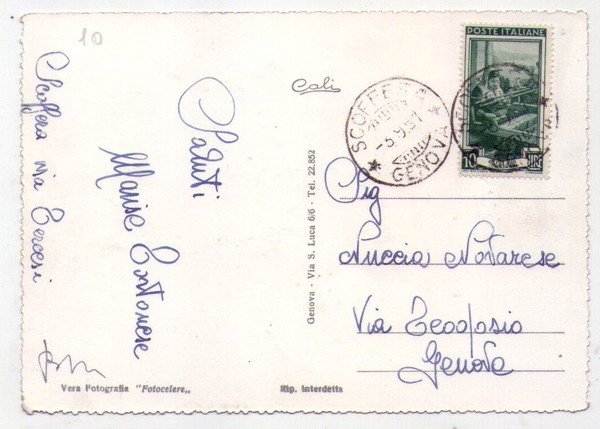 10
Scoffera via Tercesi
Saluti
Marisa Entonese
Vera Fotografia "Fotocelere„
Rip. interdetta
Genova - Via S. Luca 6/6 - Tel. 22.852
Cali
SCOFFERA
-5.9.51
GENOVA
POSTE ITALIANE
10 LIRE
Sig
Nuccia Notarese
Via Teodosio
Genova